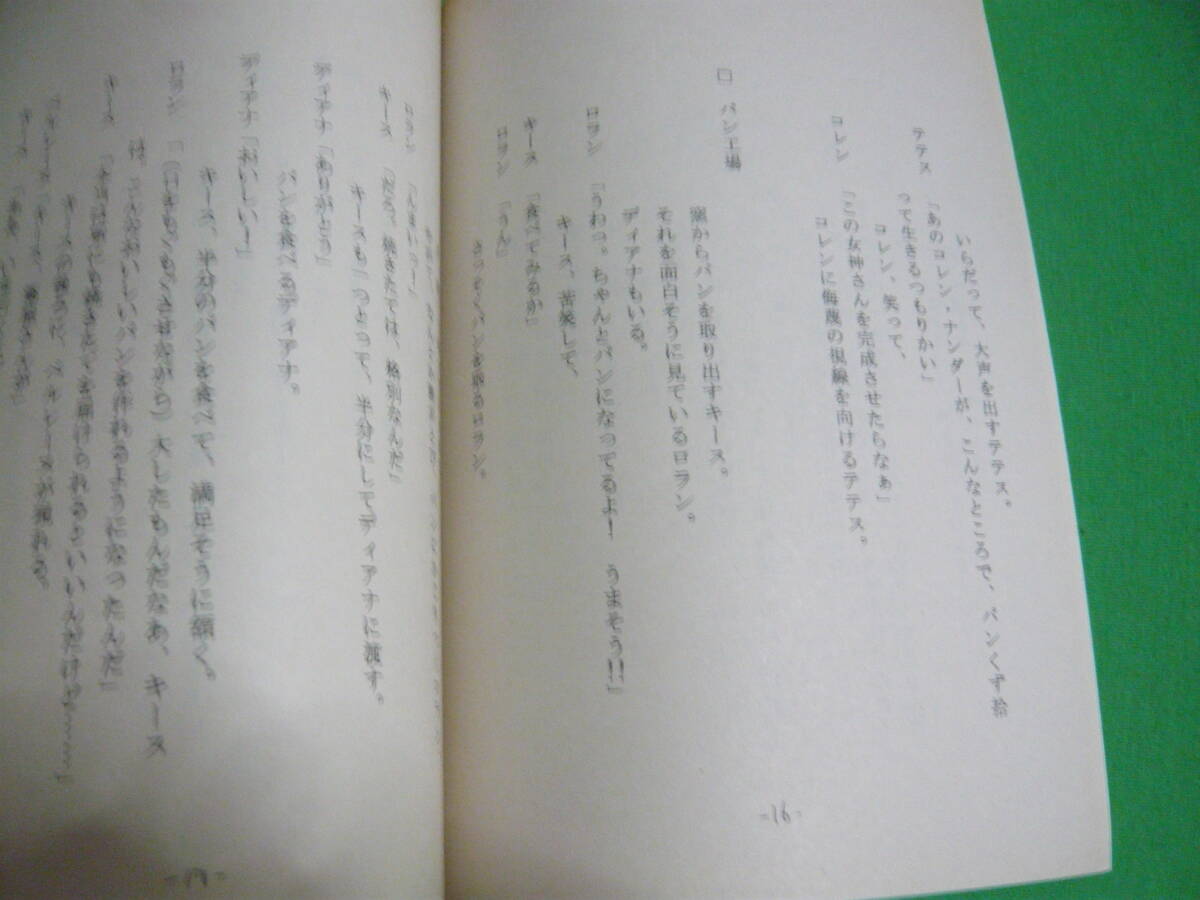 いらだって、大声を出すテテス。
テテス 「あのコレン・ナンダーが、こんなところで、パンくず拾
って生きるつもりかい」
コレン、笑って、
コレン 「この女神さんを完成させたらなぁ」
コレンに侮蔑の視線を向けるテテス。
□ パン工場
窯からパンを取り出すキース。
それを面白そうに見ているロラン。
ディアナもいる。
ロラン 「うわっ。ちゃんとパンになってるよ! うまそう!!」
キース、苦笑して、
キース 「食べてみるか」
ロラン 「うん」
さっそくパンを取るロラン。
=16=
ロラン 「んまいっ!」
キース 「だろ、焼きたては、格別なんだ」
キースも一つとって、半分にしてディアナに渡す。
ディアナ 「ありがとう」
パンを食べるディアナ。
ディアナ 「おいしい!」
キース、半分のパンを食べて、満足そうに頷く。
ロラン 大したもんだなあ、キース
は。こんなおいしいパンを作れるようになったんだ」
キース
キースの後ろに、 が現れる。
「キース、
キース
=17=